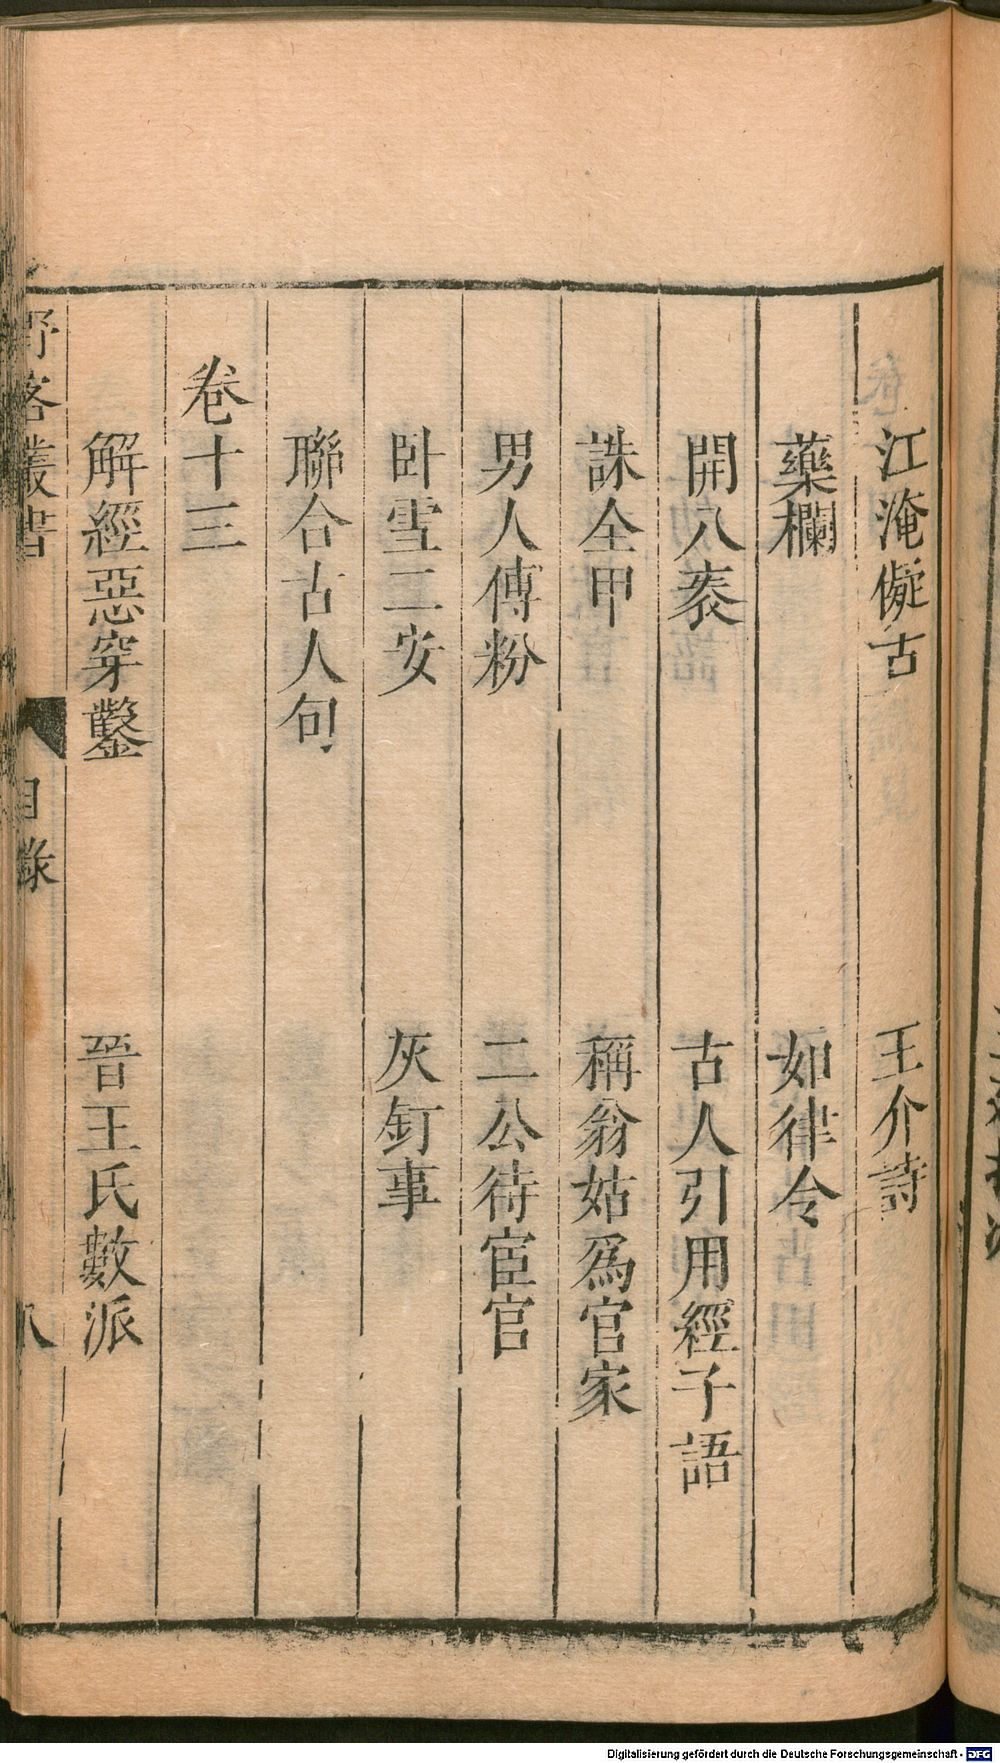 江淹儗古　王介詩
藥欄　如律令
開八袠　古人引用經子語
誅全甲　稱翁姑為官家
男人傅粉　二公待宦官
卧雪二安　灰釘事
聯合古人句
卷十三
解經惡穿鑿　晉王氏數派
野客叢書　目錄　八
Digitalisierung gefördert durch die Deutsche Forschungsgemeinschaft - DFG